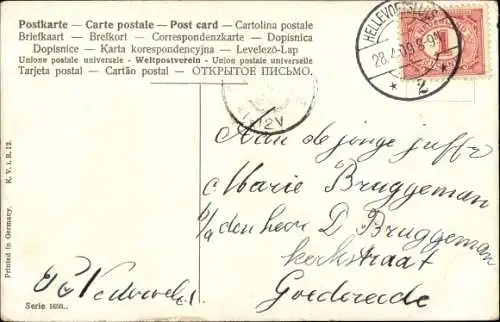 Postkarte - Carte postale - Post card - Cartolina postale
Briefkaart - Brefkort - Correspondenzkarte - Dopisnica
Dopisnice - Karta korespondencyjna - Levelező-Lap
Union postale universelle - Weltpostverein - Union postale universelle
Tarjeta postal - Cartão postal - ОТКРЫТОЕ ПИСЬМО.
HELLEVOETSLUIS
28.4.09.8-9N
* 2 *
1
12V
Aan de jonge juffr
Marie Bruggeman
b/d den heer D Bruggeman
kerkstraat
Goedereede
Printed in Germany. K. V. i. B. 12.
Serie 1650..